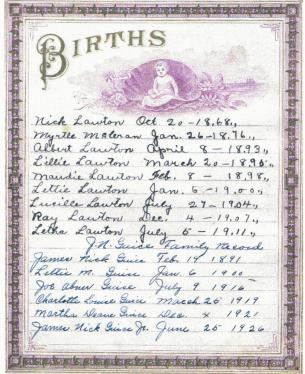 BIRTHS
Nick Lawton Oct 20-1868,,
Myrtle McLeran Jan. 26-1876,,
Albert Lawton April 8-1893,,
Lillie Lawton March 20-1895,,
Maudie Lawton Feb. 8-1898,,
Lettie Lawton Jan. 6-1900,,
Lucille Lawton July 27-1904,,
Ray Lawton Dec. 4-1907,,
Letha Lawton July 5-1911,,
J.N. Guice Family Record
James Nick Guice Feb 19 1891
Lettie M. Guice Jan. 6 1900
Joe Abner Guice July 9 1916
Charlotte Louise Guice March 25 1919
Martha Deane Guice Dec. x 1921
James Nick Guice Jr. June 25 1926